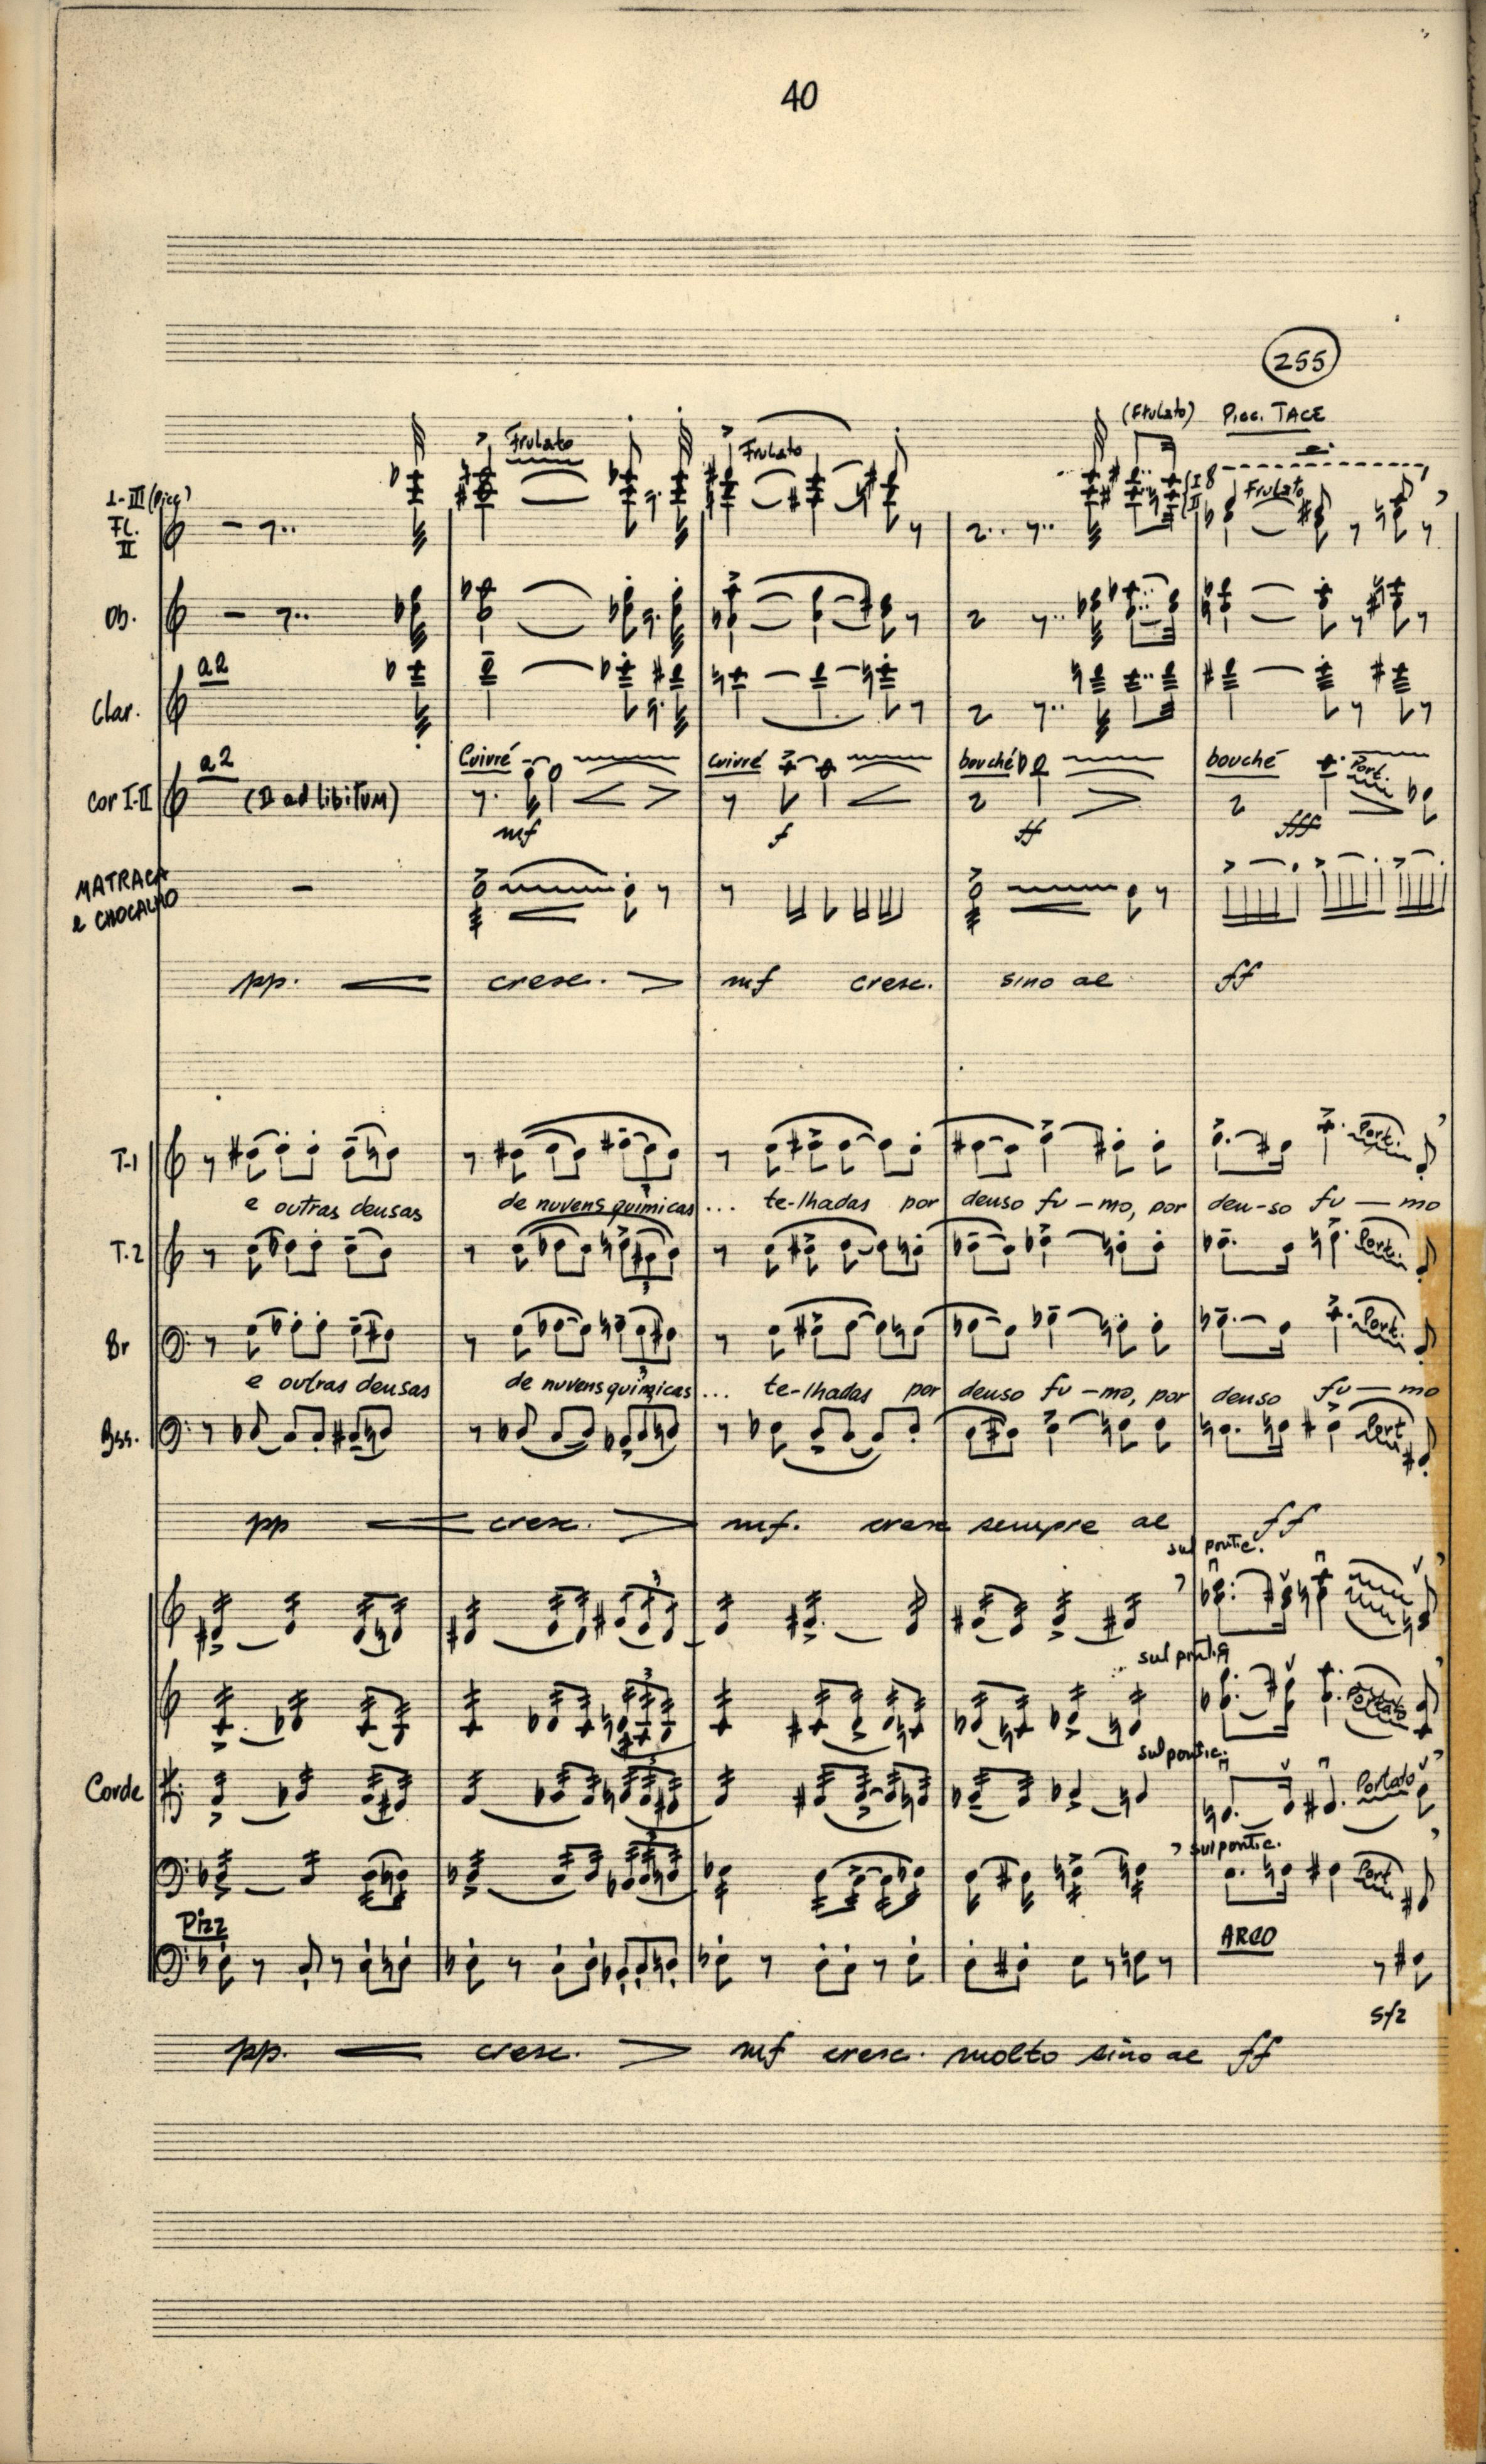 40
255
(Frulato) Picc. TACE
Frulato
Frulato
I 8
II
Frulato
I-III (Picc)
Fl.
II
Ob.
a2
Clar.
a2
Cuivré
cuivré
bouché
bouché
Port.
Cor I-II
(II ad libitum)
mf
f
ff
fff
MATRACA
e CHOCALHO
pp. cresc. mf cresc. sino al ff
T-1
Port.
e outras deusas de nuvens químicas... te-lhadas por denso fu-mo, por den-so fu-mo
T.2
Port.
3
Br
Port.
e outras deusas de nuvens químicas... te-lhadas por denso fu-mo, por denso fu-mo
3
Bss.
Port
pp cresc. mf. cresc sempre al ff
sul pontic.
3
sul pontic.
3
Portato
sul pontic.
Corde
3
Portato
sul pontic.
3
Port
Pizz
ARCO
sfz
pp. cresc. mf cresc. molto sino al ff